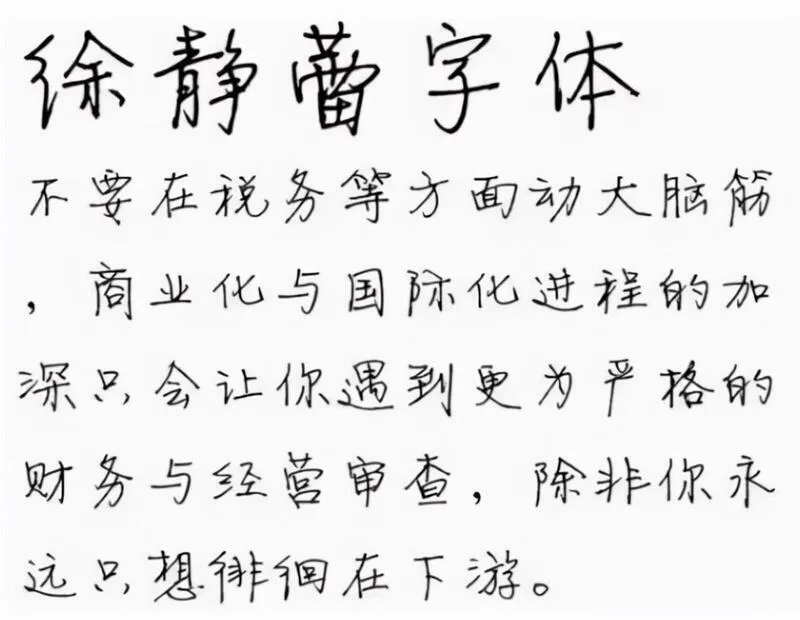 徐静蕾字体
不要在税务等方面动大脑筋
，商业化与国际化进程的加
深只会让你遇到更为严格的
财务与经营审查，除非你永
远只想徘徊在下游。